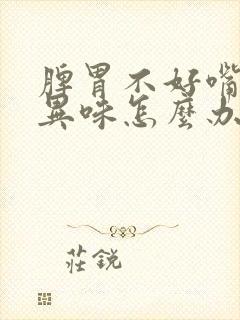 脾胃不好嘴
異味怎麼办
莊銳